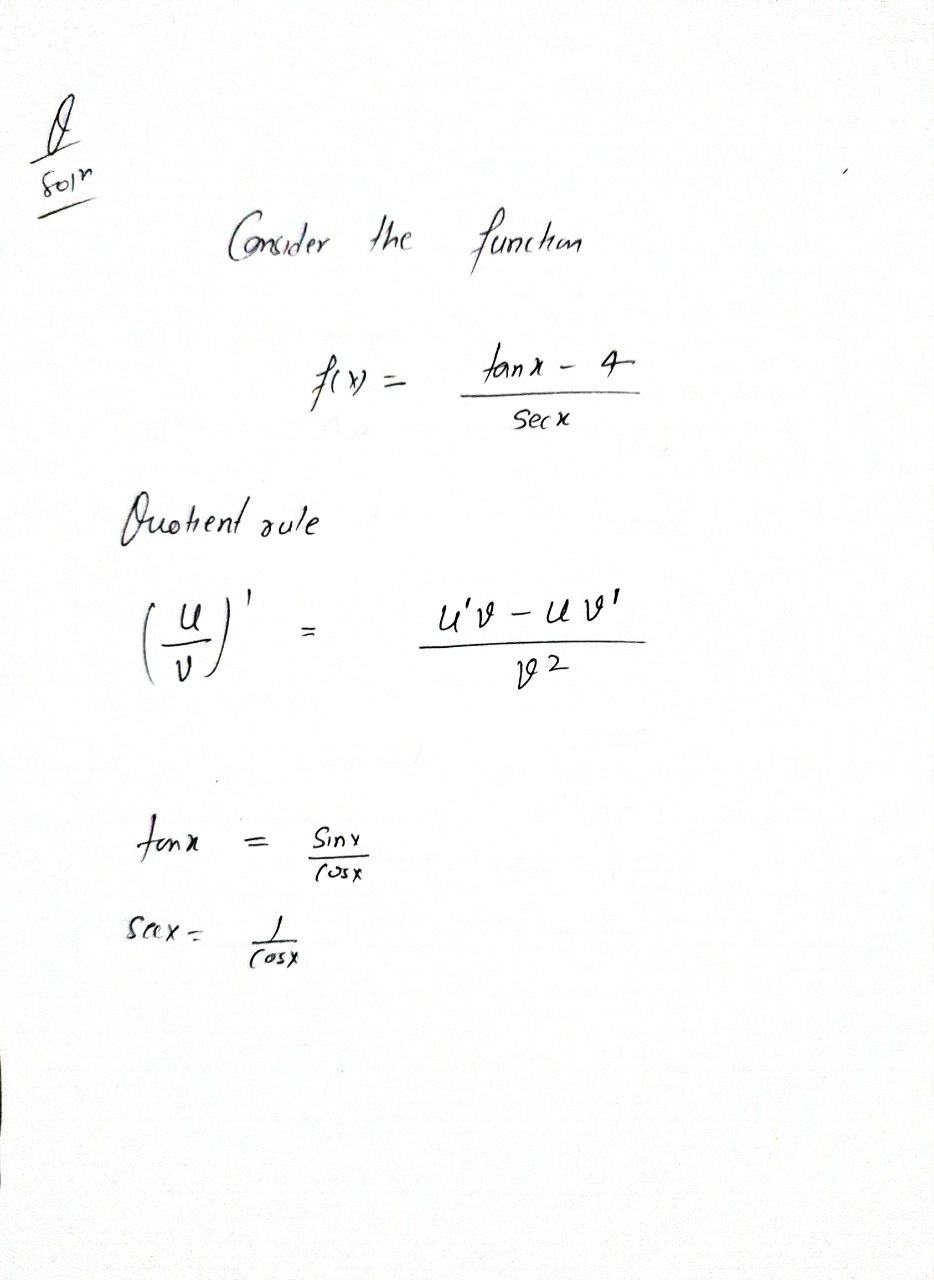 Q
Soln
Consider the function
f(x) = (tanx - 4)/(secx)
Quotient rule
(u/v)' = (u'v - uv')/(v²)
tanx = sinx/cosx
secx = 1/cosx